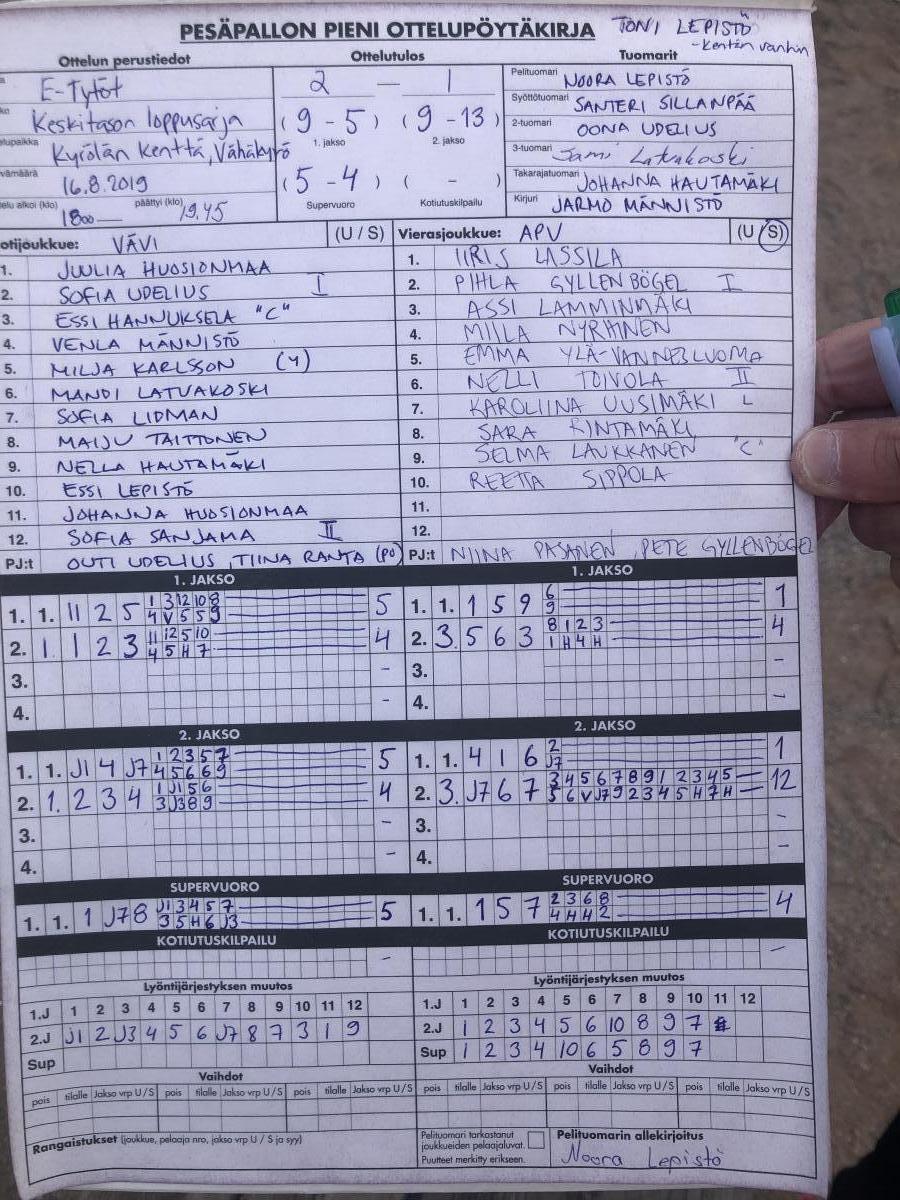 PESÄPALLON PIENI OTTELUPÖYTÄKIRJA
TONI LEPISTÖ
- kentän vanhin
Ottelun perustiedot
Ottelutulos
Tuomarit
E-Tytöt
Keskitason loppusarja
Kyrölän kenttä, Vähäkyrö
16.8.2019
(klo) 1800 päättyi (klo) 19.45
2 — 1
(9 - 5) (9 - 13)
1. jakso 2. jakso
(5 - 4) ( - )
Supervuoro Kotiutuskilpailu
Pelituomari NOORA LEPISTÖ
Syöttötuomari SANTERI SILLANPÄÄ
2-tuomari OONA UDELIUS
3-tuomari Jami Latvakoski
Takarajatuomari JOHANNA HAUTAMÄKI
Kirjuri JARMO MÄNNISTÖ
otijoukkue: VÄVI (U / S)
1. JUULIA HUOSIONMAA
2. SOFIA UDELIUS I
3. ESSI HANNUKSELA "C"
4. VENLA MÄNNISTÖ
5. MILJA KARLSSON (4)
6. MANDI LATVAKOSKI
7. SOFIA LIDMAN
8. MAIJU TAITTONEN
9. NELLA HAUTAMÄKI
10. ESSI LEPISTÖ
11. JOHANNA HUOSIONMAA
12. SOFIA SANJAMA II
PJ:t OUTI UDELIUS, TIINA RANTA (PO)
Vierasjoukkue: APV (U / S)
1. IIRIS LASSILA
2. PIHLA GYLLENBÖGEL I
3. ASSI LAMMINMÄKI
4. MIILA NYRHINEN
5. EMMA YLÄ-VANNESLUOMA
6. NELLI TOIVOLA II
7. KAROLIINA UUSIMÄKI L
8. SARA RINTAMÄKI
9. SELMA LAUKKANEN "C"
10. REETTA SIPPOLA
11.
12.
PJ:t NIINA PASANEN, PETE GYLLENBÖGEL
1. JAKSO
1. 1. 11 2 5 1 3 12 10 8 5
4 V 5 5 9
2. 1. 1 2 3 11 12 5 10 4
4 5 H 7
3. -
4. -
1. JAKSO
1. 1. 1 5 9 6 1
9
2. 3. 5 6 3 8 1 2 3 4
1 H 4 H
3. -
4. -
2. JAKSO
1. 1. J1 4 J7 1 2 3 5 7 5
4 5 6 6 9
2. 1. 2 3 4 1 J1 5 6 4
3 J3 8 9
3. -
4. -
2. JAKSO
1. 1. 4 1 6 2 1
J7
2. 3. J7 6 7 3 4 5 6 7 8 9 1 2 3 4 5 12
5 6 V J7 9 2 3 4 5 H 7 H
3. -
4. -
SUPERVUORO
1. 1. 1 J7 8 J1 3 4 5 7 5
3 5 H 6 J3
SUPERVUORO
1. 1. 1 5 7 2 3 6 8 4
4 H H 2
KOTIUTUSKILPAILU
-
KOTIUTUSKILPAILU
-
Lyöntijärjestyksen muutos
1.J 1 2 3 4 5 6 7 8 9 10 11 12
2.J J1 2 J3 4 5 6 J7 8 7 3 1 9
Sup
Lyöntijärjestyksen muutos
1.J 1 2 3 4 5 6 7 8 9 10 11 12
2.J 1 2 3 4 5 6 10 8 9 7
Sup 1 2 3 4 10 6 5 8 9 7
Vaihdot
pois tilalle Jakso vrp U / S pois tilalle Jakso vrp U / S pois tilalle Jakso vrp U / S
Vaihdot
pois tilalle Jakso vrp U / S pois tilalle Jakso vrp U / S pois tilalle Jakso vrp U / S
Rangaistukset (joukkue, pelaaja nro, jakso vrp U / S ja syy)
Pelituomari tarkastanut
joukkueiden pelaajaluvat.
Puutteet merkitty erikseen.
Pelituomarin allekirjoitus
Noora Lepistö